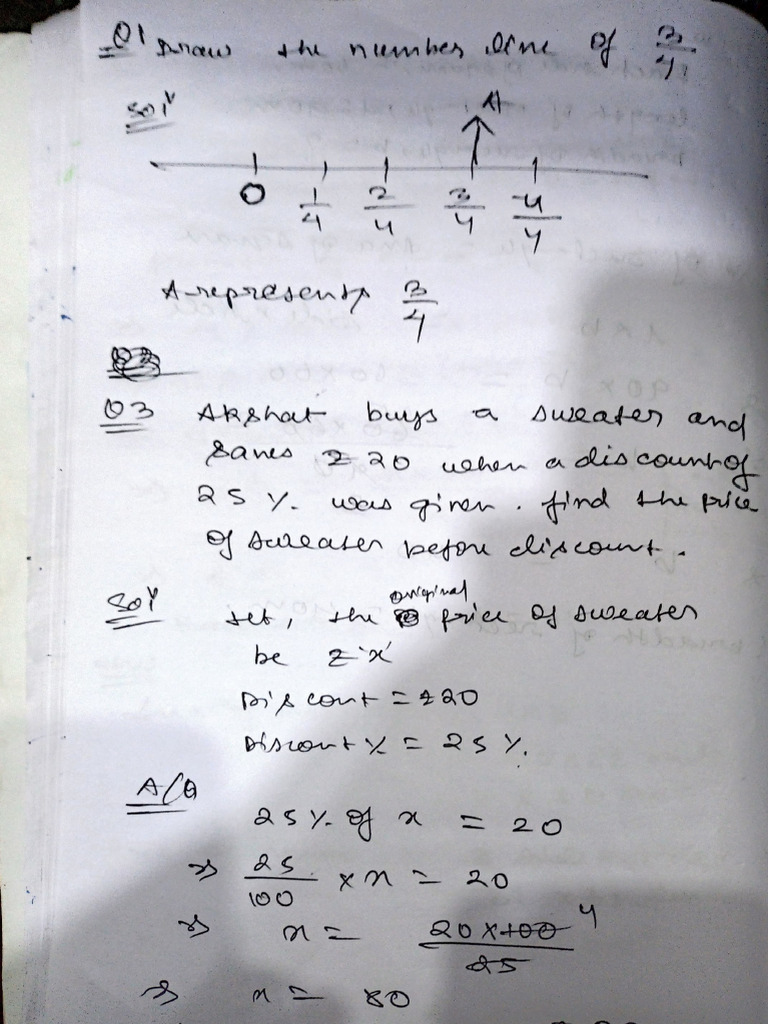 Q1 Draw the number line of 3/4
Sol^n
A
0 1/4 2/4 3/4 4/4
A represents 3/4
Q3 Akshat buys a sweater and
saves ₹ 20 when a discount of
25 %. was given. find the price
of sweater before discount.
Sol^n Let, the original price of sweater
be ₹ 'x'
Discont = ₹20
Discont % = 25 %.
A/Q
25 % of x = 20
⇒ 25/100 × x = 20
⇒ x = 20 × 100/25 4
⇒ x = 80